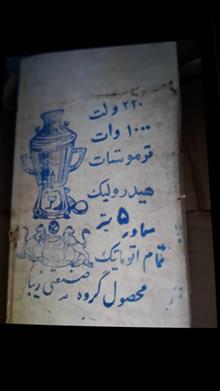 ۲۲۰ ولت
۱۰۰۰ وات
ترموستات
هیدرولیک
سماور ۵ لیتر
تمام اتوماتیک
محصول گروه صنعتی زیبا